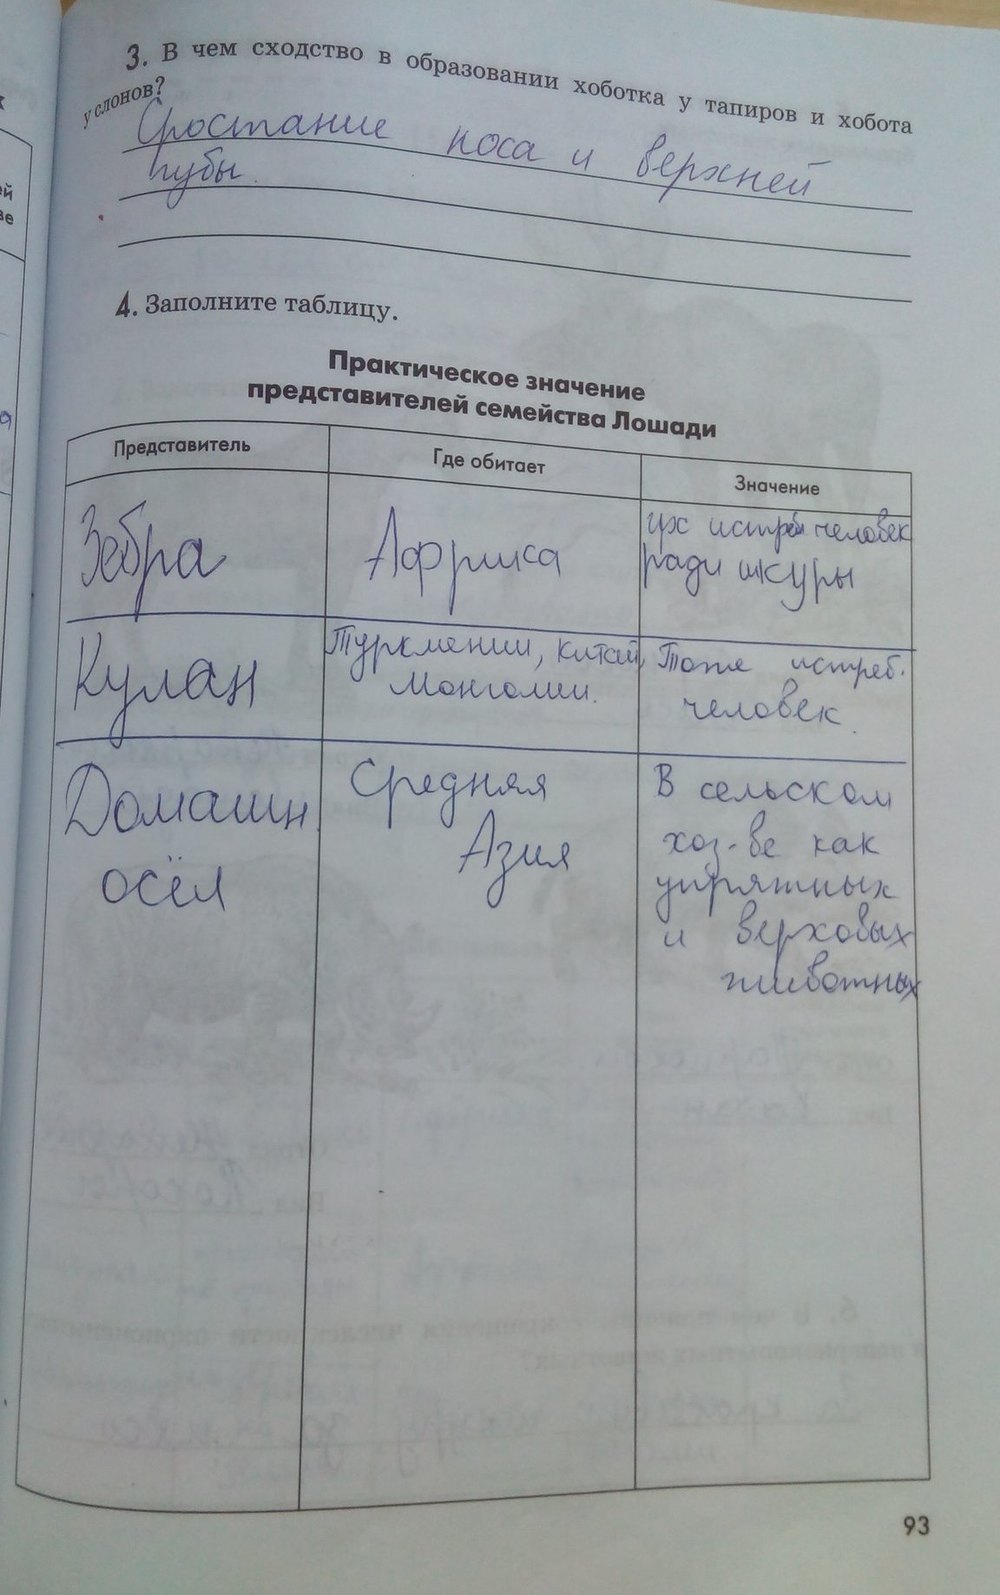 3. В чем сходство в образовании хоботка у тапиров и хобота
у слонов?
Сростание носа и верхней
губы.
4. Заполните таблицу.
Практическое значение
представителей семейства Лошади
Представитель
Где обитает
Значение
Зебра
Африка
их истреб человек
ради шкуры
Кулан
Туркмении, Китай,
Монголии.
Тоже истреб.
человек.
Домашн.
осёл
Средняя
Азия
В сельском
хоз-ве как
упряжных
и верховых
животных
93